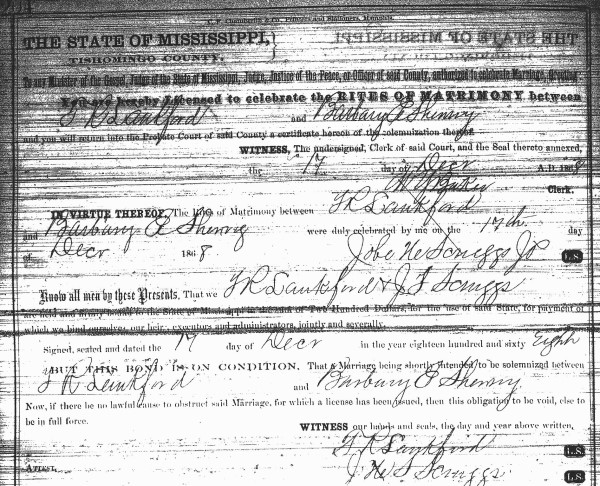 THE STATE OF MISSISSIPPI,
TISHOMINGO COUNTY.
To any Minister of the Gospel, Judge of the State of Mississippi, Judge, Justice of the Peace, or Officer of said County, authorized to celebrate Marriage, Greeting
You are hereby Licensed to celebrate the RITES OF MATRIMONY between
F R Lankford and Barbary E Sherry
and you will return into the Probate Court of said County a certificate hereof of the solemnization thereof.
WITNESS, The undersigned, Clerk of said Court, and the Seal thereto annexed,
the 17 day of Decr A.D. 1868
Clerk.
IN VIRTUE THEREOF, The Rites of Matrimony between F R Lankford
and Barbary E Sherry were duly celebrated by me on the 17th day
of Decr 1868
Scruggs J P L.S.
Know all men by these Presents, That we F R Lankford & J S Scruggs
are held and firmly the State of Mississippi in the sum of Two Hundred Dollars, for the use of said State, for payment of
which we bind ourselves, our heirs, executors and administrators, jointly and severally.
Signed, sealed and dated the 17 day of Decr in the year eighteen hundred and sixty Eighth
BUT THIS BOND IS ON CONDITION, That a Marriage being shortly intended to be solemnized between
F R Lankford and Barbary E Sherry
Now, if there be no lawful cause to obstruct said Marriage, for which a license has been issued, then this obligation to be void, else to
be in full force.
WITNESS our hands and seals, the day and year above written,
F R Lankford L.S.
ATTEST, Scruggs L.S.